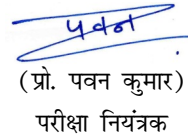 पवन
(प्रो. पवन कुमार)
परीक्षा नियंत्रक